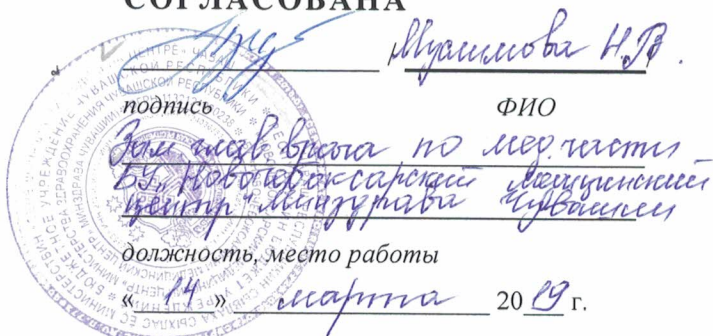 СОГЛАСОВАНА
Мусимова Н.В.
подпись ФИО
Зам глав врача по мед. части
БУ „Новочебоксарский медицинский
центр" Минздрава Чувашии
должность, место работы
« 14 » марта 2019 г.